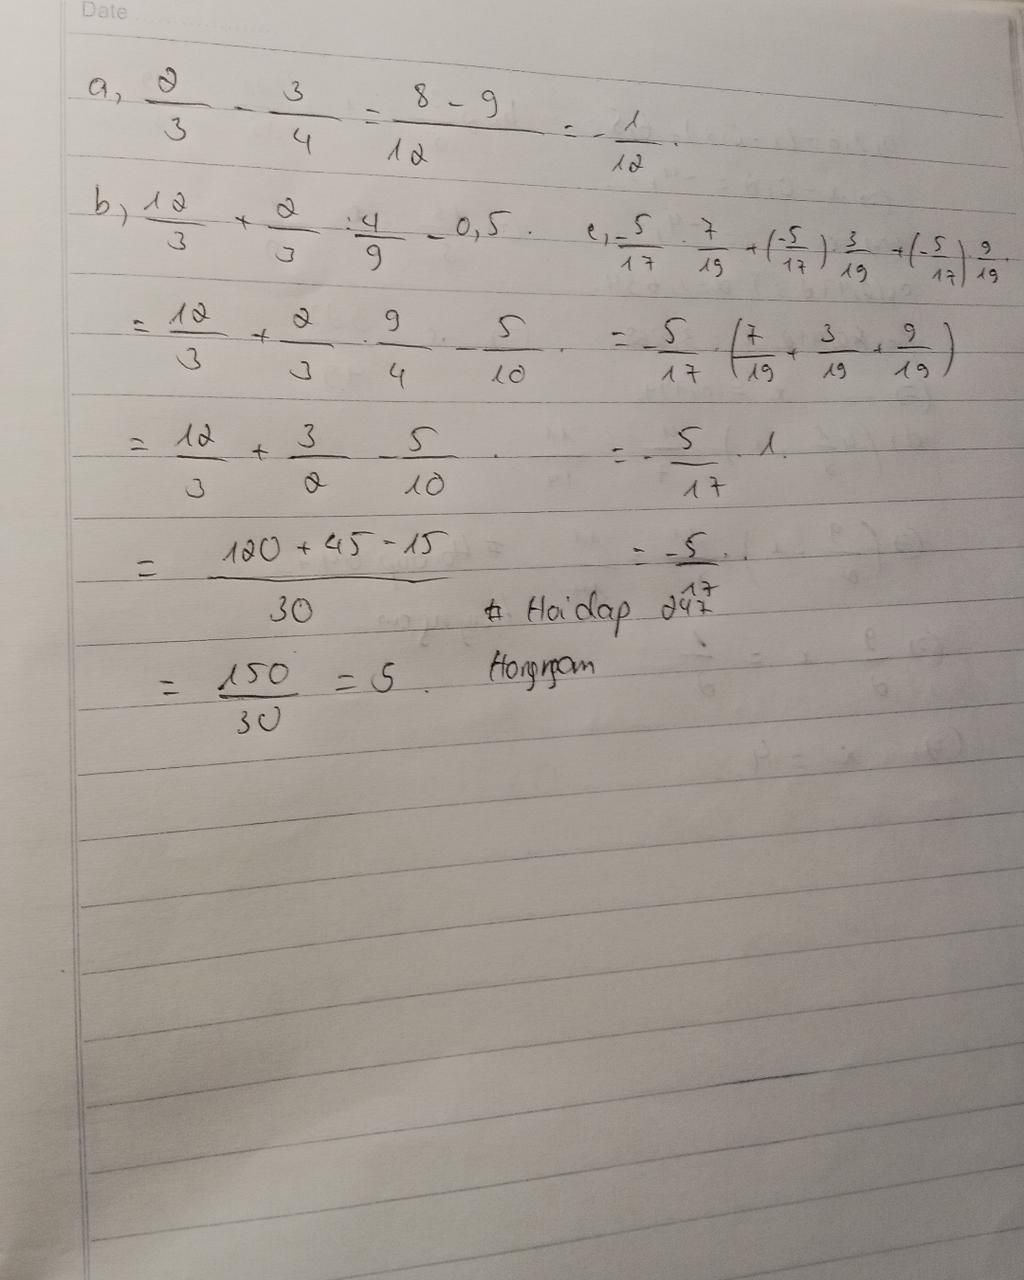 Date
a, 2/3 - 3/4 = (8 - 9)/12 = - 1/12 .
b, 12/3 + 2/3 : 4/9 - 0,5 .
= 12/3 + 2/3 . 9/4 - 5/10 .
= 12/3 + 3/2 - 5/10 .
= (120 + 45 - 15)/30
= 150/30 = 5 .
c, -5/17 . 7/19 + (-5/17) 3/19 + (-5/17) 9/19 .
= -5/17 . (7/19 + 3/19 + 9/19)
= - 5/17 . 1.
= -5/17 .
# Hoidap 247
Hongngam